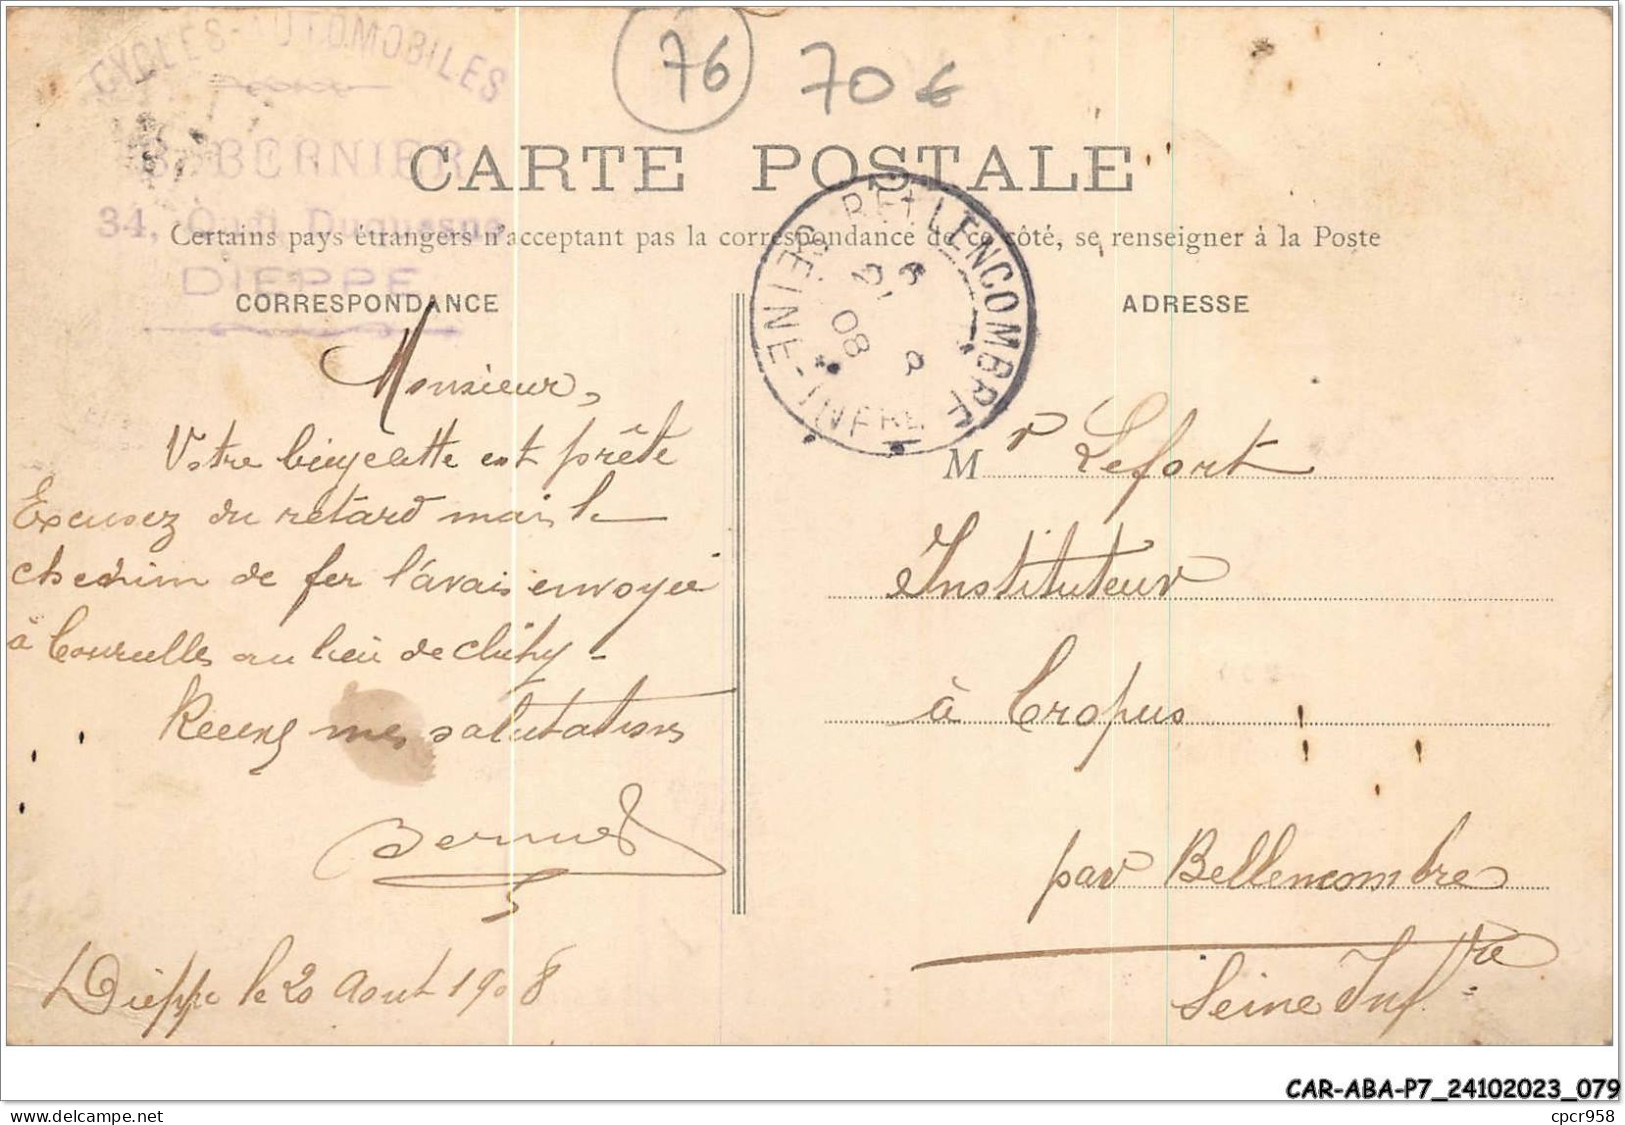 CYCLES-AUTOMOBILES
BERNIER
34, Quai Duquesne
DIEPPE
76
70€
CARTE POSTALE
Certains pays étrangers n'acceptent pas la correspondance de ce côté, se renseigner à la Poste
CORRESPONDANCE
ADRESSE
BELLENCOMBRE
SEINE-INFRE
08
Monsieur,
Votre bicyclette est prête
Excusez du retard mais le
chemin de fer l'avais envoyée
à Courcelles au lieu de Clichy -
Recevez mes salutations
Bernier
Dieppe le 20 Aout 1908
Mr Lefort
Instituteur
à Cropus
par Bellencombre
Seine Infre
CAR-ABA-P7_24102023_079
cpcr958